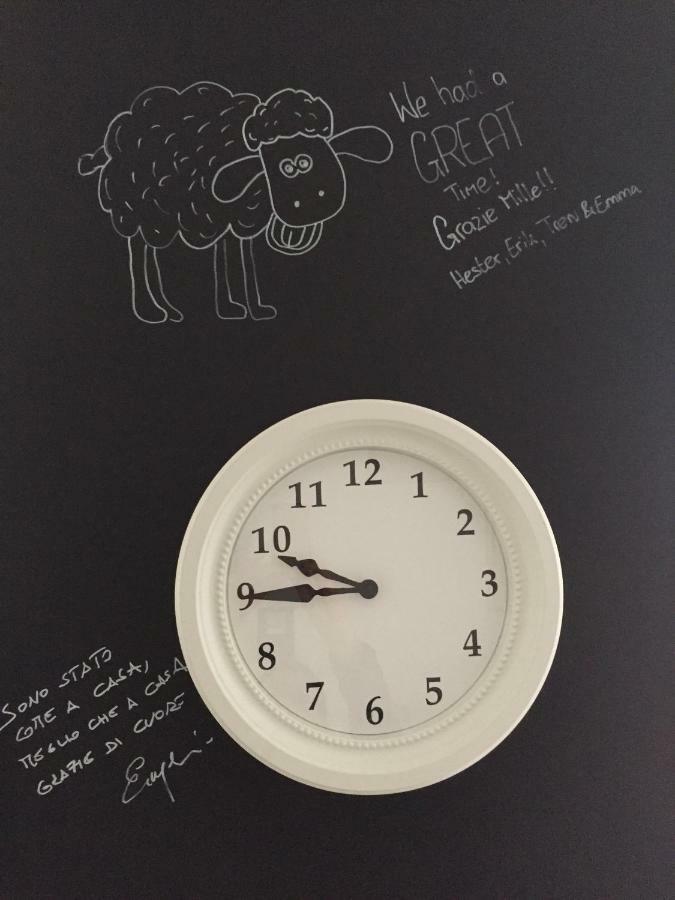 We had a
GREAT
Time!
Grazie Mille!!
Hester, Erik, & Emma
12
11 1
10 2
9 3
8 4
7 5
6
SONO STATO
COME A CASA,
MEGLIO CHE A CASA
GRAZIE DI CUORE